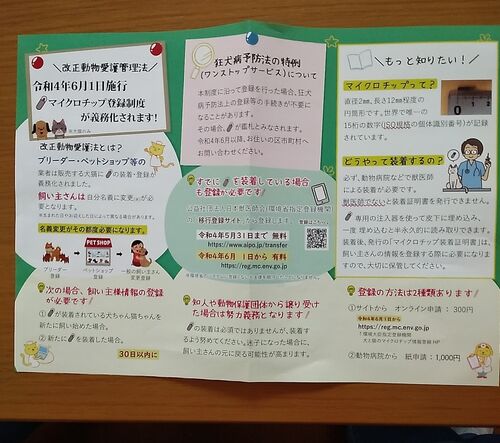 ＼改正動物愛護管理法／
令和4年6月1日施行
マイクロチップ登録制度
が義務化されます！
改正動物愛護法とは？
ブリーダー・ペットショップ等の
業者は販売する犬猫に の装着・登録が
義務化されました。
飼い主さんは自分名義に変更 が必
要となります。
名義変更がその都度必要になります。
PET SHOP
ブリーダー
登録
ペットショップ
登録
一般の飼い主
変更登録
次の場合、飼い主様情報の登録
が必要です！
① が装着されている犬ちゃん猫ちゃんを
新たに飼い始めた場合。
②新たに を装着した場合。
30日以内に
狂犬病予防法の特例
(ワンストップサービス)について
本制度に沿って登録を行った場合、狂犬
病予防法上の登録等の手続きが不要に
なることがあります。
その場合、 が鑑札とみなされます。
令和4年6月以降、お住いの区市町村へ
お問い合わせください。
すでに を装着している場合
も登録が必要です！
公益社団法人日本獣医師会(環境省指定登録機関)
の「移行登録サイト」から登録します。
令和4年5月31日まで 無料
https://www.aipo.jp/transfer
令和4年6月 1日から 有料
https://reg.mc.env.go.jp
知人や動物愛護団体から譲り受け
た場合は努力義務となります！
の装着は必須ではありませんが、装着する
よう努めてください。迷子になった場合に、
飼い主さんの元に戻る可能性が高まります。
＼もっと知りたい！／
マイクロチップって？
直径2㎜、長さ12㎜程度の
円筒形です。世界で唯一の
15桁の数字(ISO規格の個体識別番号)が記録
されています。
どうやって装着するの？
必ず、動物病院などで獣医師
による装着が必要です。
獣医師でないと装着証明書を発行できません。
専用の注入器を使って皮下に埋め込み、
一度 埋め込むと半永久的に読み取りできます。
装着後、発行の「マイクロチップ装着証明書」は、
飼い主さんの情報を登録する際に必要になりま
すので、大切に保管してください。
登録の方法は2種類あります！
①サイトから オンライン申請 ： 300円
令和4年6月1日から
https://reg.mc.env.go.jp
↑環境大臣指定登録機関
犬と猫のマイクロチップ情報登録 HP
②動物病院から 紙申請 ： 1,000円